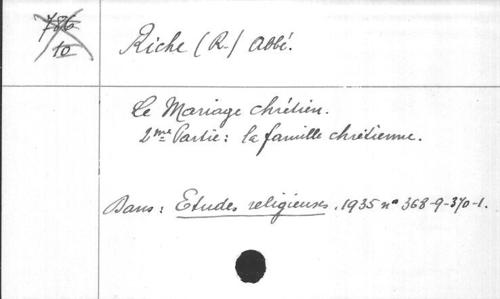 786
10
Riche (R.) Abbé.
Le Mariage chrétien.
2me Partie: la famille chrétienne.
Dans: Etudes religieuses. 1935 no 368-9-370-1.